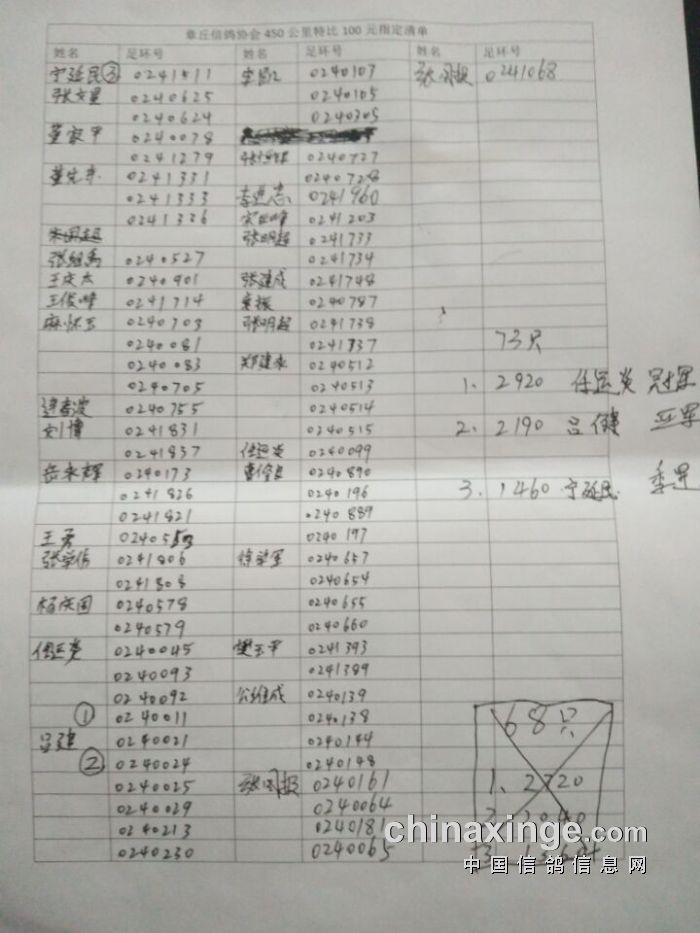 章丘信鸽协会450公里特比100元指定清单
姓名 足环号 姓名 足环号 姓名 足环号
宁延民③ 0241511 0240107 0241068
张文星 0240625 0240105
0240624 0240305
董家甲 0240078
0241279 0240727
0241331 0240728
0241333 李延志 0241960
0241336 0241203
张明超 0241733
0240527 0241734
王庆太 0240901 张建成 0241748
王俊峰 0241714 0240787
麻怀玉 0240703 张明超 0241738
0240081 0241737
73只
0240083 郑建永 0240512
0240705 0240513
1. 2920 任运炎 冠军
0240755 0240514
刘博 0241831 0240515
2. 2190 吕健 亚军
0241837 任运炎 0240099
岳来辉 0240173 曹修良 0240890
0241826 0240196
3. 1460 宁延民 季军
0241821 0240889
王勇 0240553 0240197
张学信 0241806 徐荣军 0240657
0241808 0240654
杨庆国 0240578 0240655
0240579 0240660
任运炎 0240045 樊玉甲 0241393
0240093 0241389
0240092 公维成 0240139
① 0240011 0240138
68只
吕建 0240021 0240144
② 0240024 0240148
0240025 0240161
1、2720
0240029 0240064
2 2040
0240213 0240181
chinaxinge.com
0240230 0240065
3
中国信鸽信息网